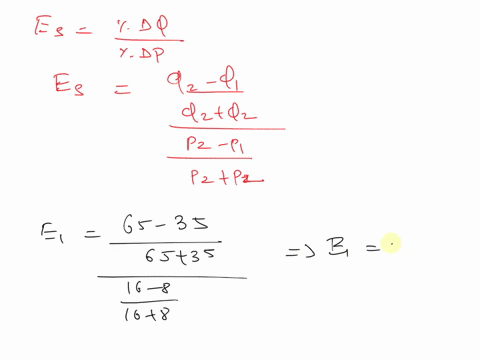 Es = %. DQ / %. DP
Es = Q2 - Q1 / Q2 + Q2 / P2 - P1 / P2 + P2
E1 = 65 - 35 / 65 + 35 / 16 - 8 / 16 + 8 => E1 =